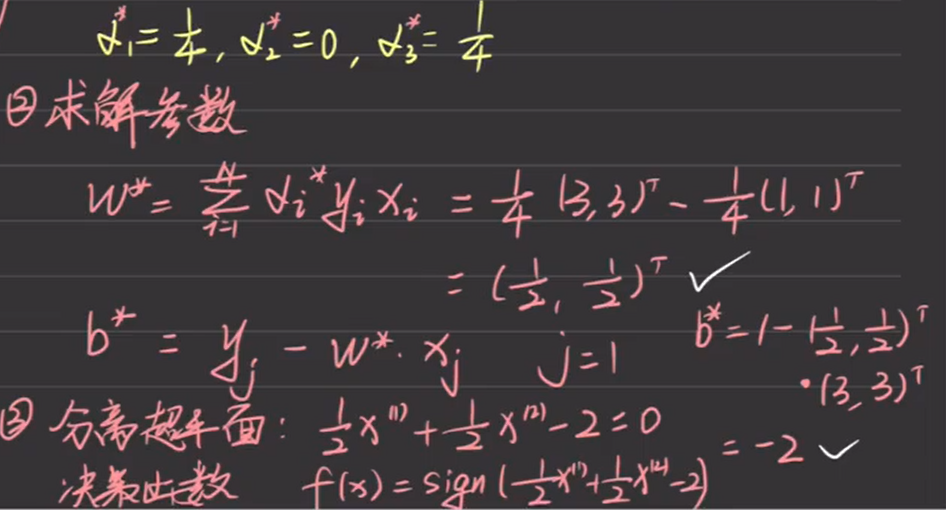 α₁* = 1/4, α₂* = 0, α₃* = 1/4
② 求解参数
w* = Σᵢ₌₁ᴺ αᵢ* yᵢ xᵢ = 1/4 (3,3)ᵀ - 1/4 (1,1)ᵀ
= (1/2, 1/2)ᵀ ✓
b* = yⱼ - w*·xⱼ j=1
b* = 1 - (1/2, 1/2)ᵀ
·(3,3)ᵀ
= -2 ✓
③ 分离超平面: 1/2 x⁽¹⁾ + 1/2 x⁽²⁾ - 2 = 0
决策函数 f(x) = sign (1/2 x⁽¹⁾ + 1/2 x⁽²⁾ - 2)